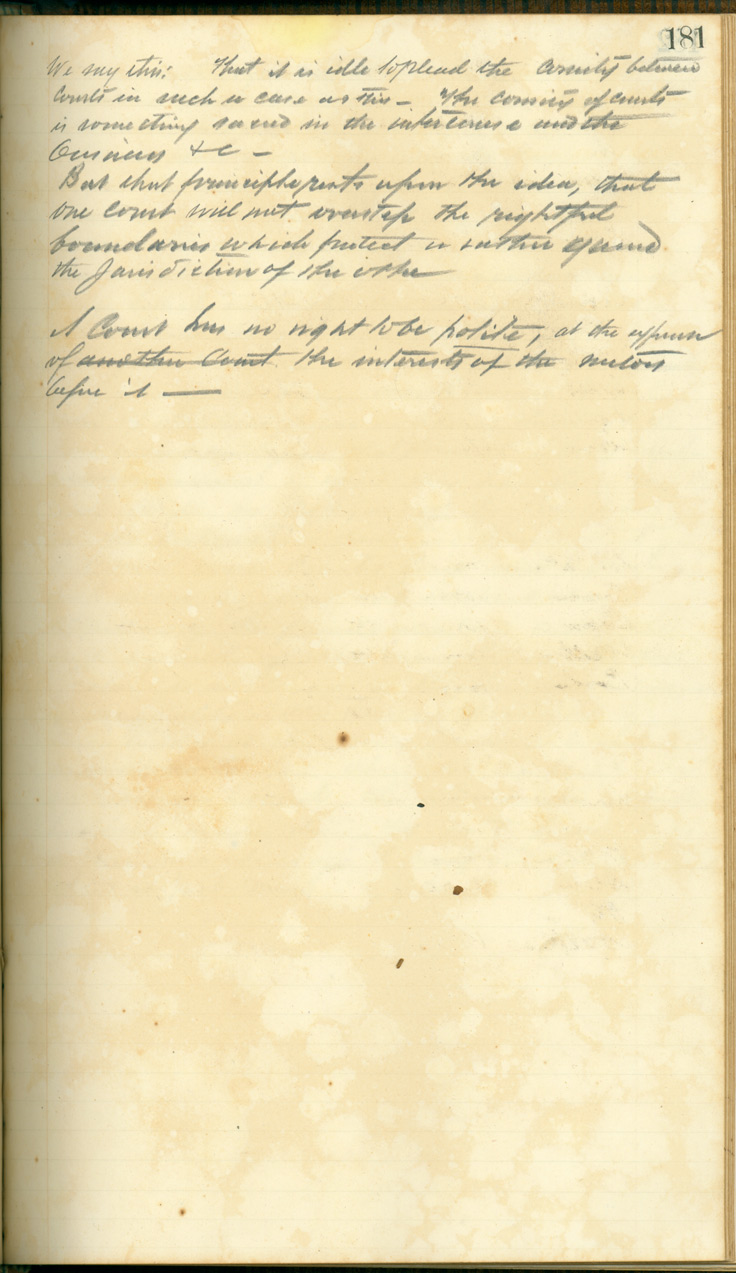 181
We say this: That it is idle to plead the comity between
Courts in such a case as this — The comity of courts
is something sacred in the intercourse and the
business &c —
But that principle rests upon the idea, that
one court will not overstep the rightful
boundaries which protect or rather guard
the Jurisdiction of the other
A Court has no right to be polite, at the expense
of another Court the interests of the suitors
before it —